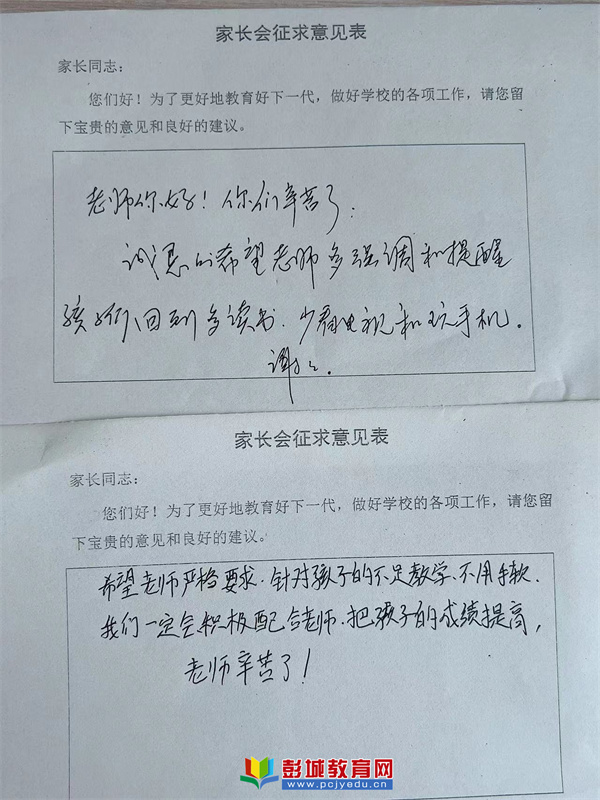 家长会征求意见表
家长同志：
您们好！为了更好地教育好下一代，做好学校的各项工作，请您留
下宝贵的意见和良好的建议。
老师你好！你们辛苦了：
诚恳的希望老师多强调和提醒
孩子们回到多读书．少看电视和玩手机．
谢谢．
家长会征求意见表
家长同志：
您们好！为了更好地教育好下一代，做好学校的各项工作，请您留
下宝贵的意见和良好的建议。
希望老师严格要求．针对孩子的不足教学、不用手软．
我们一定会积极配合老师．把孩子的成绩提高，
老师辛苦了！
彭城教育网
www.pcjyedu.cn